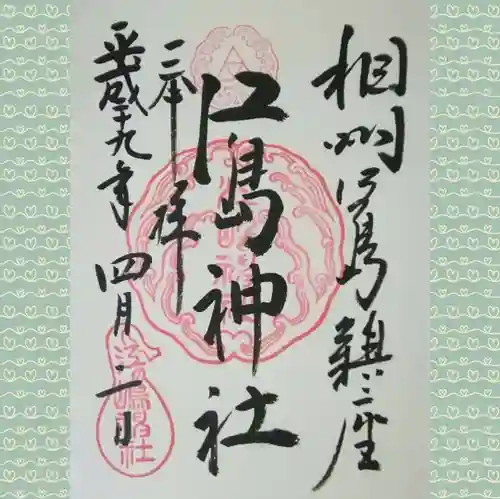 相州江島鎮座
江島神社
奉拝
平成二十九年四月二日